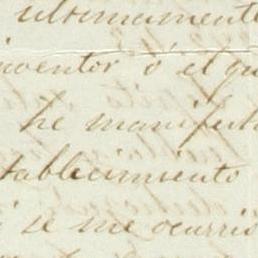 ultimamente
inventor ó el qu
he manifest
tablecimiento
i se me ocurrio